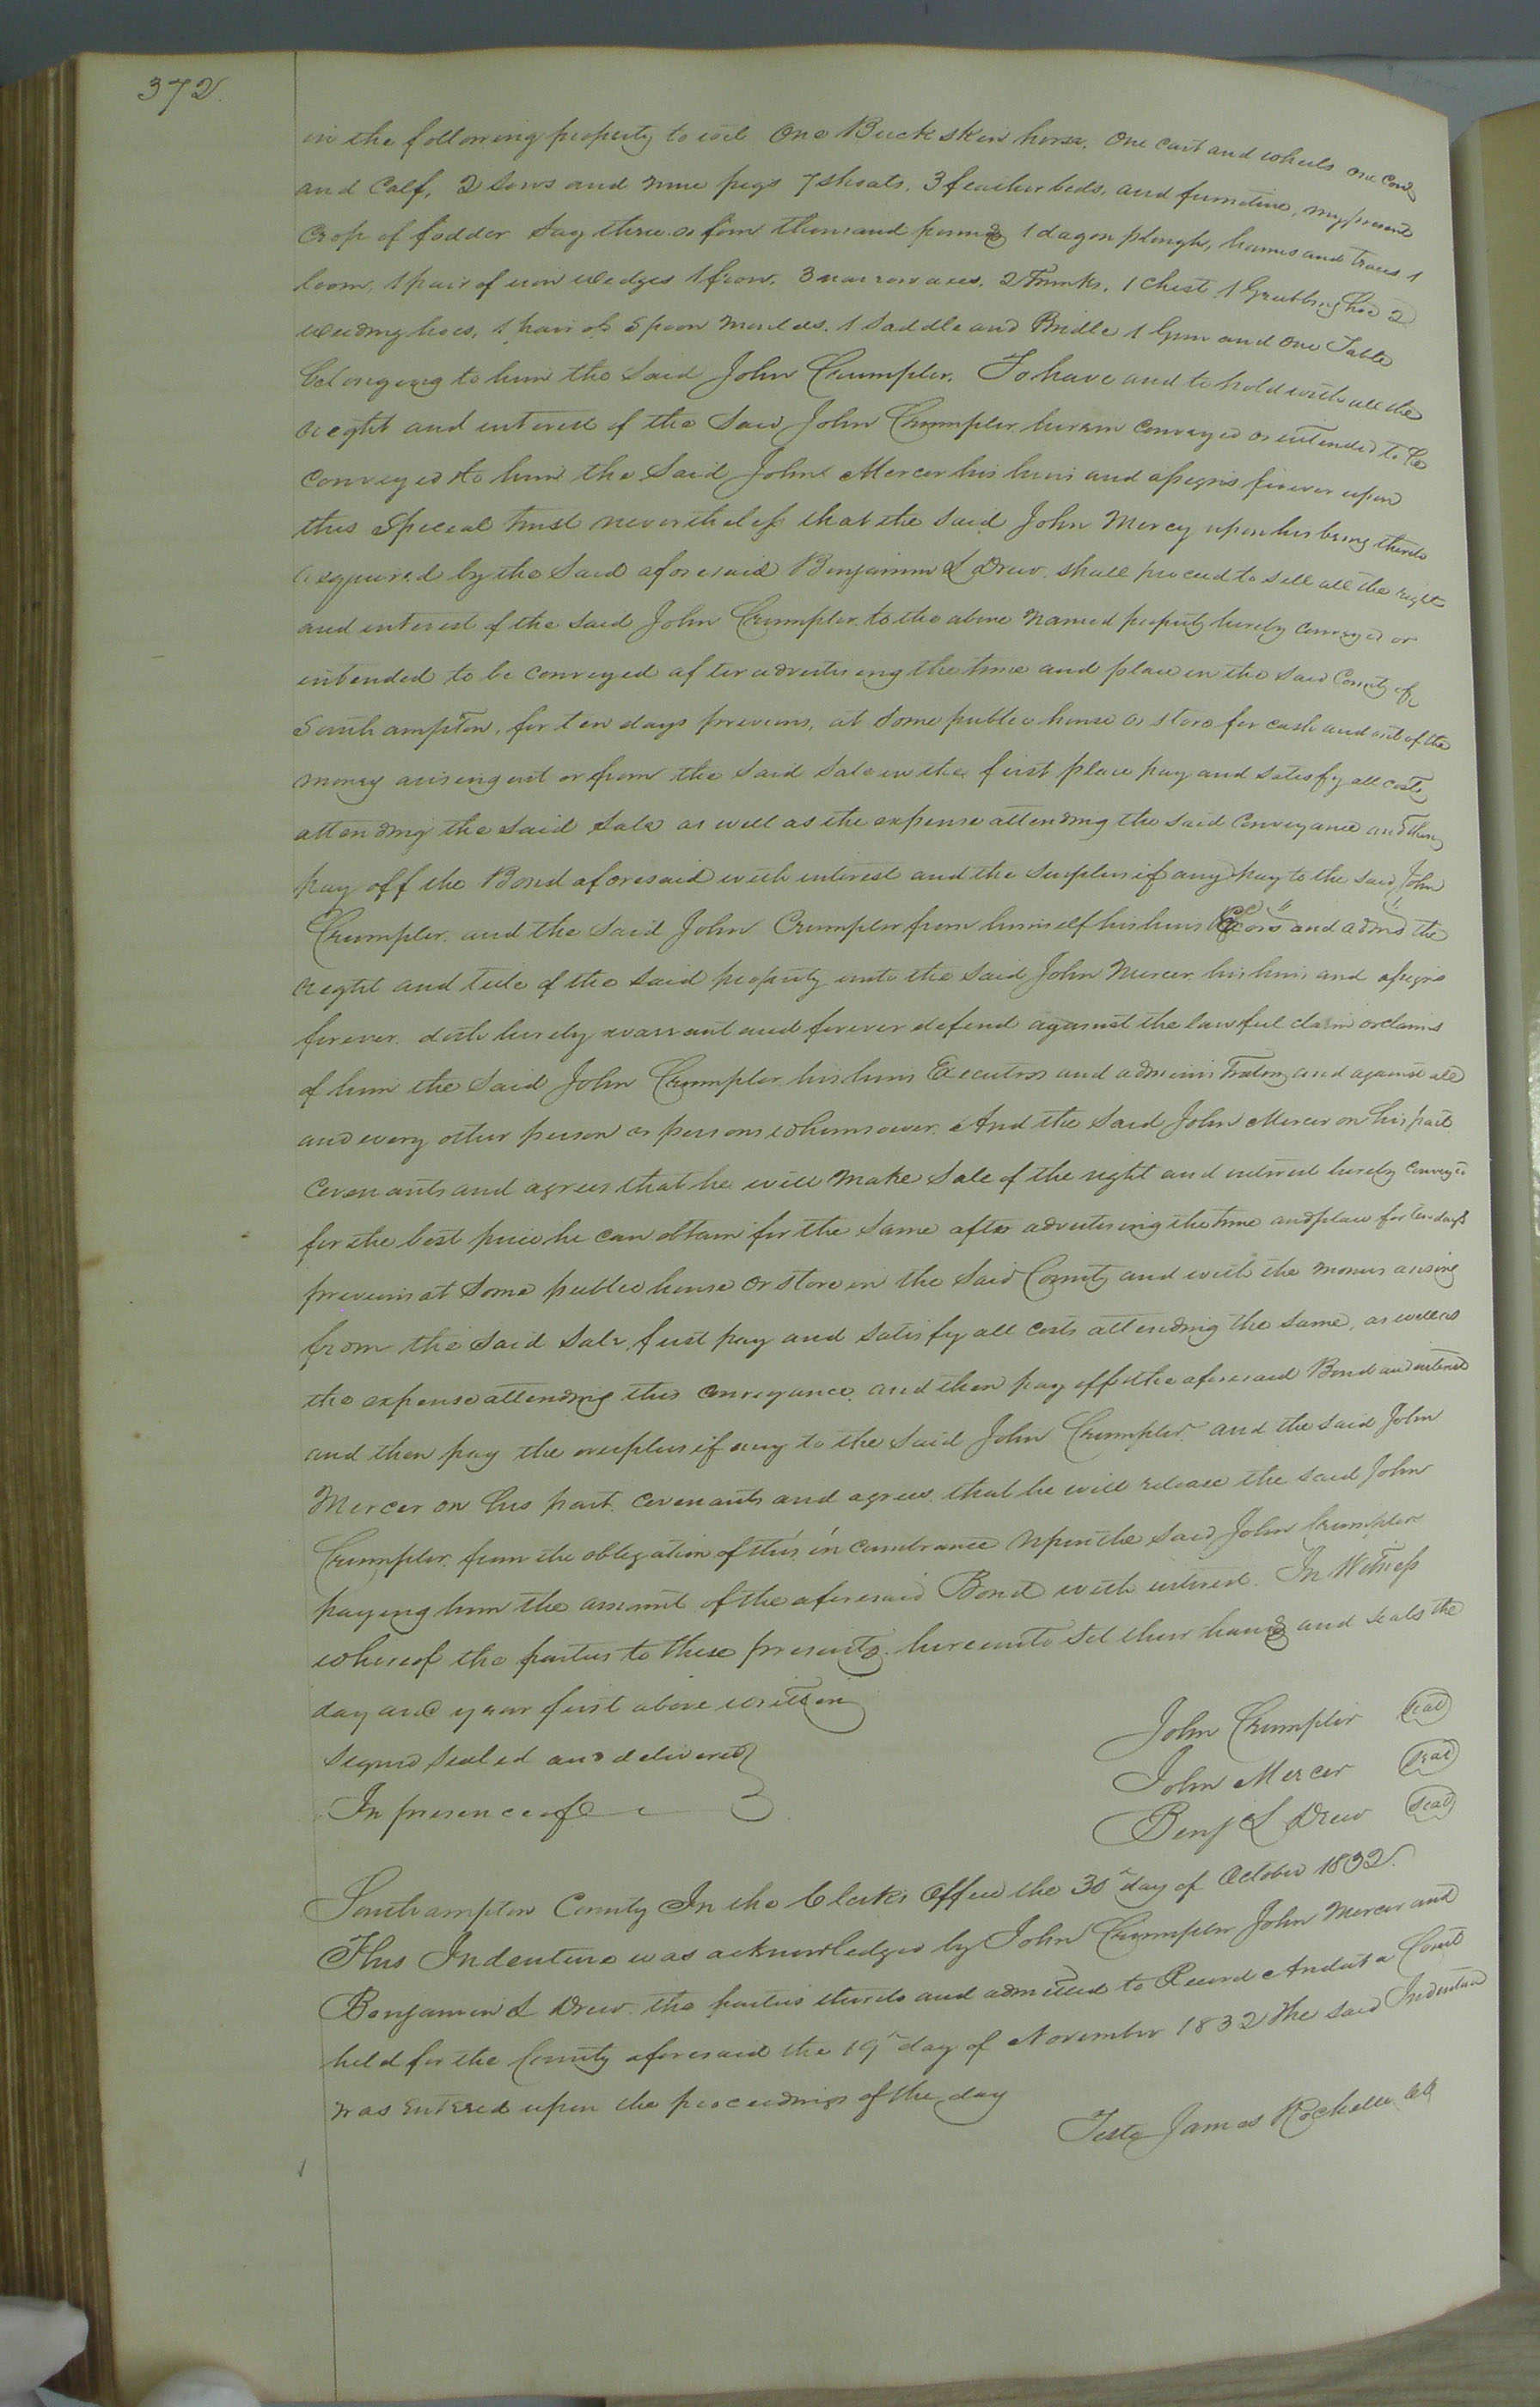 372.
in the following property to wit One Buckskin horse. One cart and wheels one Cow
and Calf, 2 Sows and nine pigs 7 shoats, 3 feather beds, and furniture, my present
Crop of fodder Say three or four thousand pounds 1 dagon plough, hames and traces 1
loom, 1 pair of iron wedges 1 frow, 3 narrow axes, 2 Trunks, 1 Chest 1 Grubbing hoe 2
weeding hoes, 1 pair of Spoon Moulds. 1 Saddle and Bridle 1 Gun and One Table
belonging to him the Said John Crumpler. To have and to hold with all the
right and interest of the Said John Crumpler herein Conveyed or intended to be
Conveyed to him the Said John Mercer his heirs and assigns forever upon
this Special trust nevertheless that the said John Mercy upon his being thereto
required by the Said aforesaid Benjamin L Drew shall proceed to sell all the right
and interest of the Said John Crumpler to the above named property hereby conveyed or
intended to be Conveyed after advertising the time and place in the Said County of
Southampton, for ten days previous, at some public house or store for cash and out of the
money arising out or from the Said Sale in the first place pay and satisfy all costs
attending the Said Sale as well as the expense attending the said Conveyance and then
pay off the Bond aforesaid with interest and the Surplus if any pay to the said John
Crumpler. and the Said John Crumpler from himself his heirs Exors and adms the
right and title of the said property unto the Said John Mercer his heirs and assigns
forever. doth hereby warrant and forever defend against the lawful claim or claims
of him the Said John Crumpler his heirs Executors and administrators and against all
and every other person or persons whomsoever. And the Said John Mercer on his part
Covenants and agrees that he will Make Sale of the right and interest hereby Conveyed
for the best price he can obtain for the Same after advertising the time and place for ten days
previous at Some public house or store in the Said County and with the monies arising
from the Said Sale, first pay and Satisfy all costs attending the Same, as well as
the expense attending this Conveyance. and then pay off the aforesaid Bond and interest
and then pay the overplus if any to the Said John Crumpler. and the Said John
Mercer on his part. Covenants and agrees. that he will release the said John
Crumpler. from the obligation of this incumbrance upon the Said John Crumpler
paying him the amount of the aforesaid Bond with interest. In Witness
whereof the parties to these presents. hereunto Set their hands and seals the
day and year first above written
Signed Sealed and delivered
In presence of
John Crumpler seal
John Mercer seal
Benj L Drew seal
Southampton County In the Clerks Office the 30th day of October 1832.
This Indenture was acknowledged by John Crumpler John Mercer and
Benjamin L Drew the parties thereto and admitted to Record And at a Court
held for the County aforesaid the 19th day of November 1832 The said Indenture
was entered upon the proceedings of the day
Teste James Rochelle CC